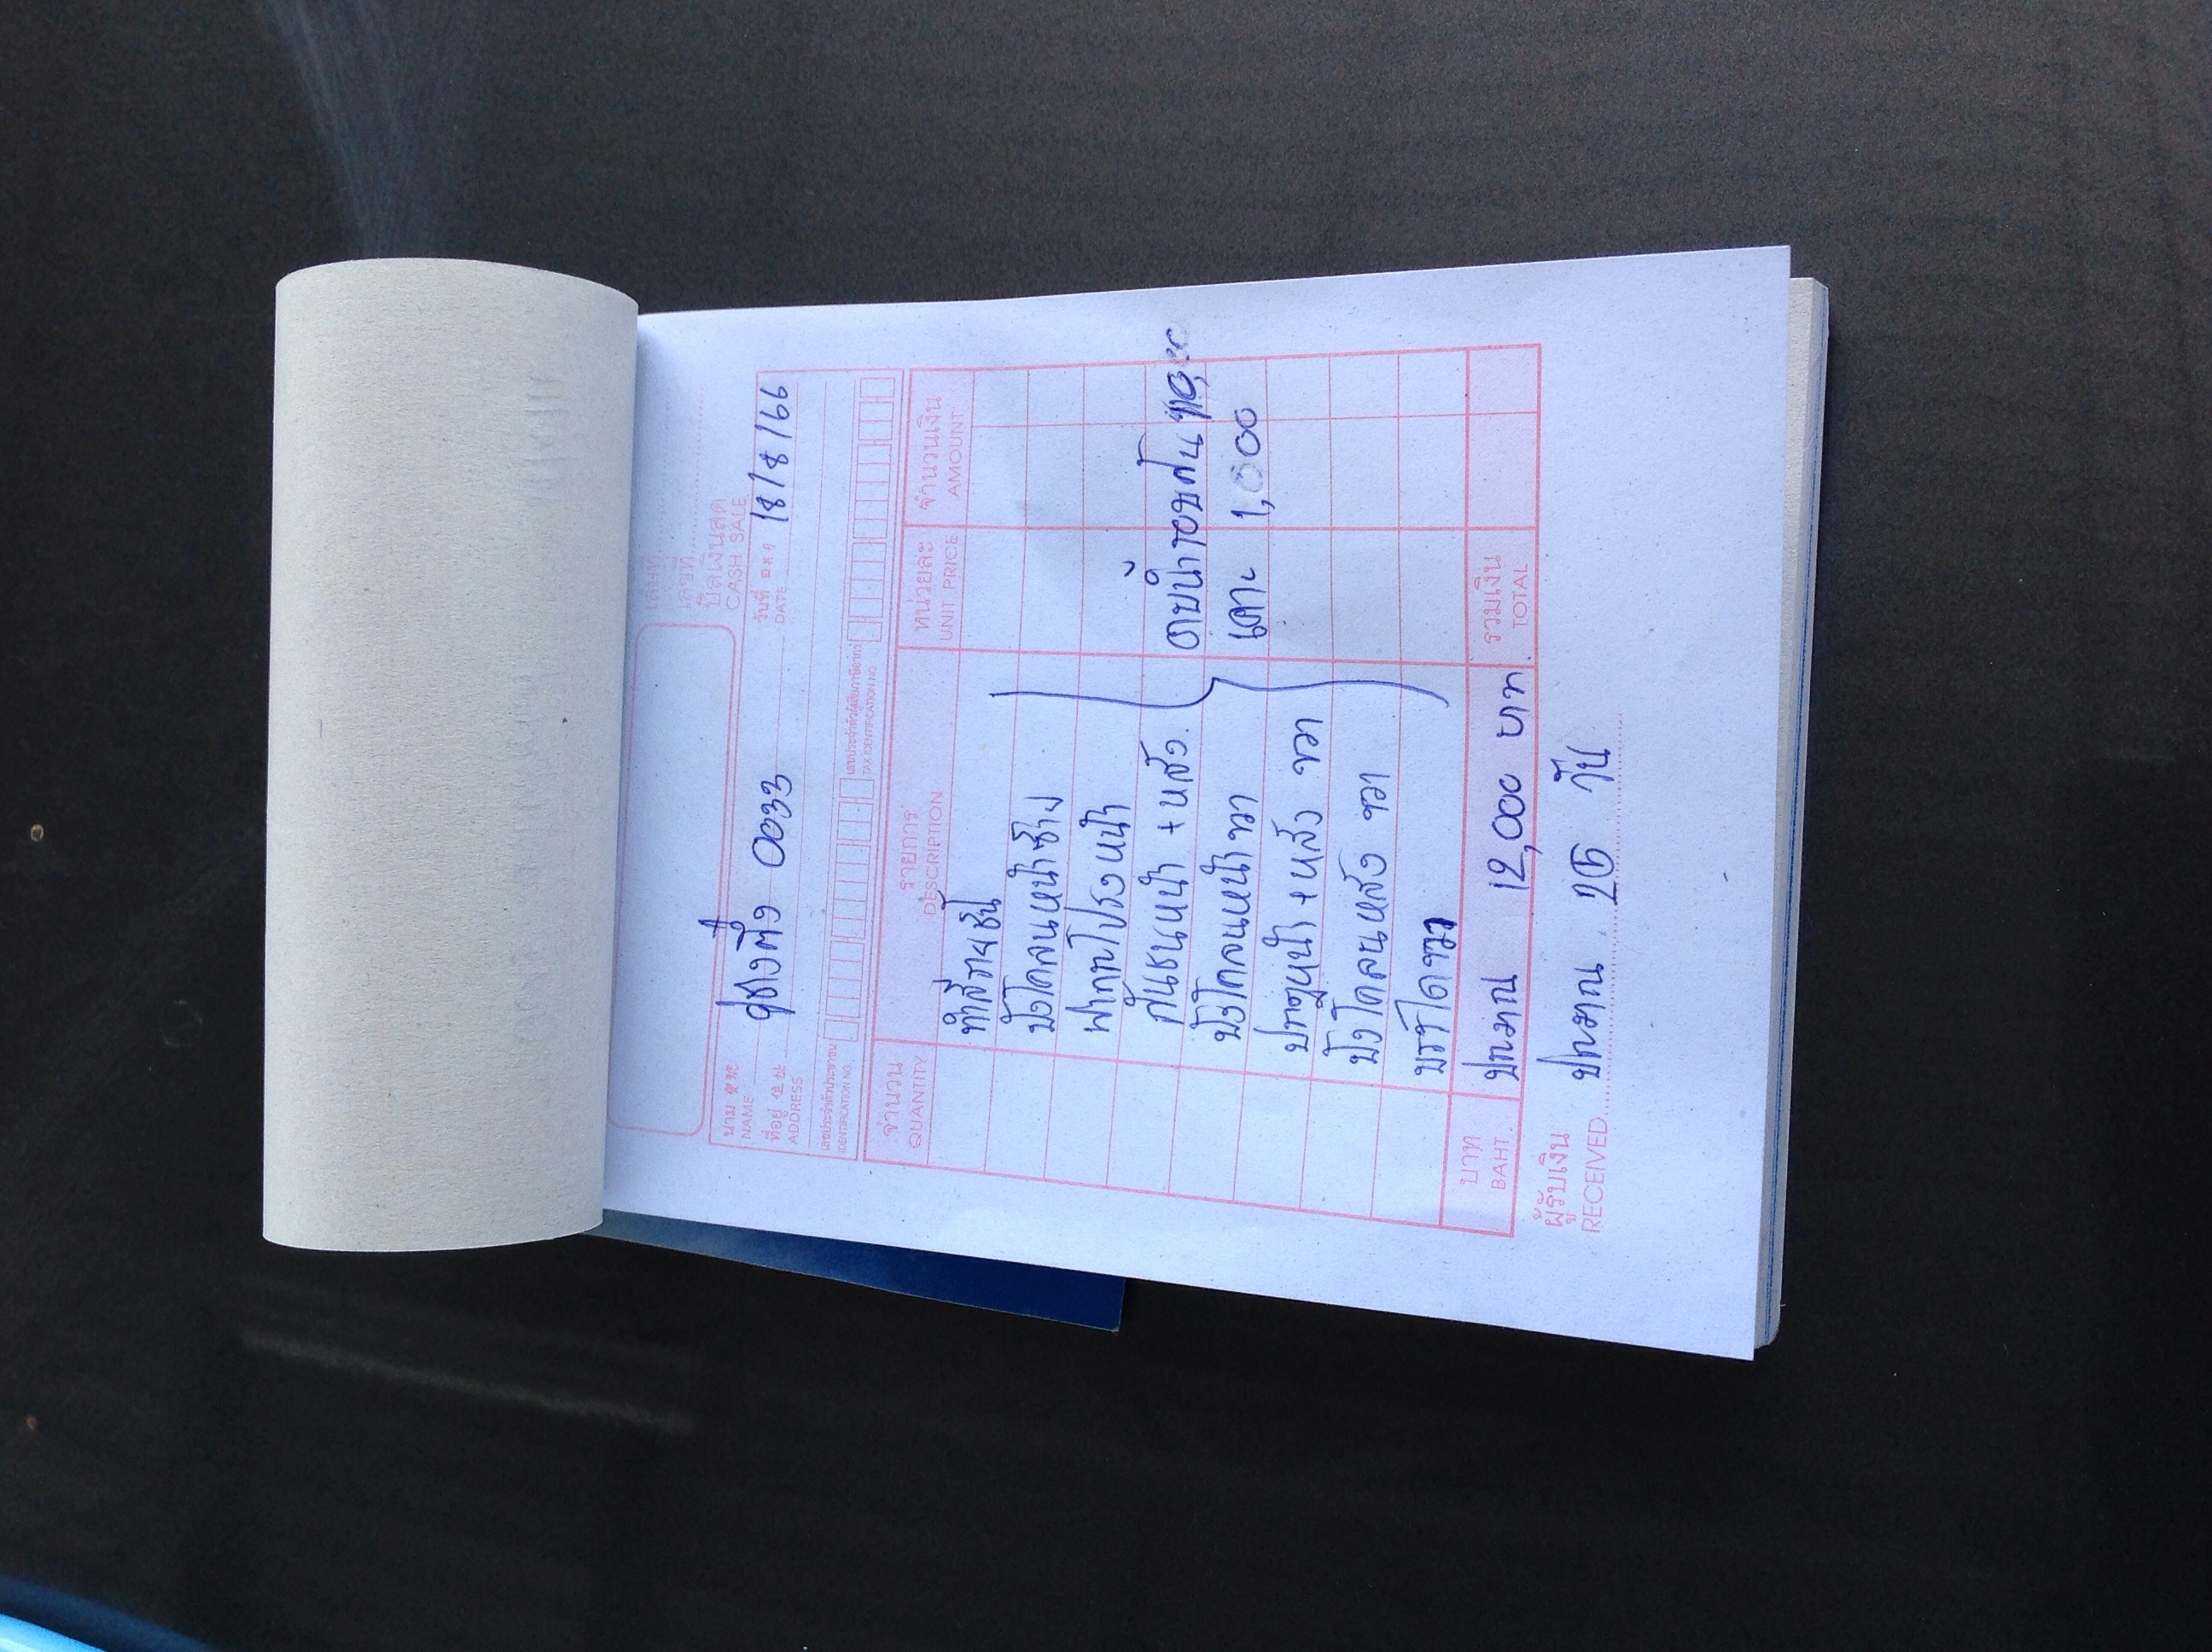 เล่มที่
เลขที่
บิลเงินสด
CASH SALE
นาม
NAME
อู่ช่างติ่ง 0033
วันที่
DATE
18/8/66
ที่อยู่
ADDRESS
เลขประจำตัวประชาชน
IDENTIFICATION NO.
เลขประจำตัวผู้เสียภาษีอากร
TAX IDENTIFICATION NO.
จำนวน รายการ หน่วยละ จำนวนเงิน
QUANTITY DESCRIPTION UNIT PRICE AMOUNT
ทำสีรายชิ้น
บังโคลนหน้าซ้าย
ฝากระโปรงหน้า
กันชนหน้า + หลัง
บังโคลนหน้าขวา
ประตูหน้า + หลัง ขวา
บังโคลนหลัง ขวา
บรรไดขวา
เคาะ 1,000
บาท ประมาณ 12,000 บาท รวมเงิน
BAHT TOTAL
ผู้รับเงิน
RECEIVED
ประมาณ 25 วัน